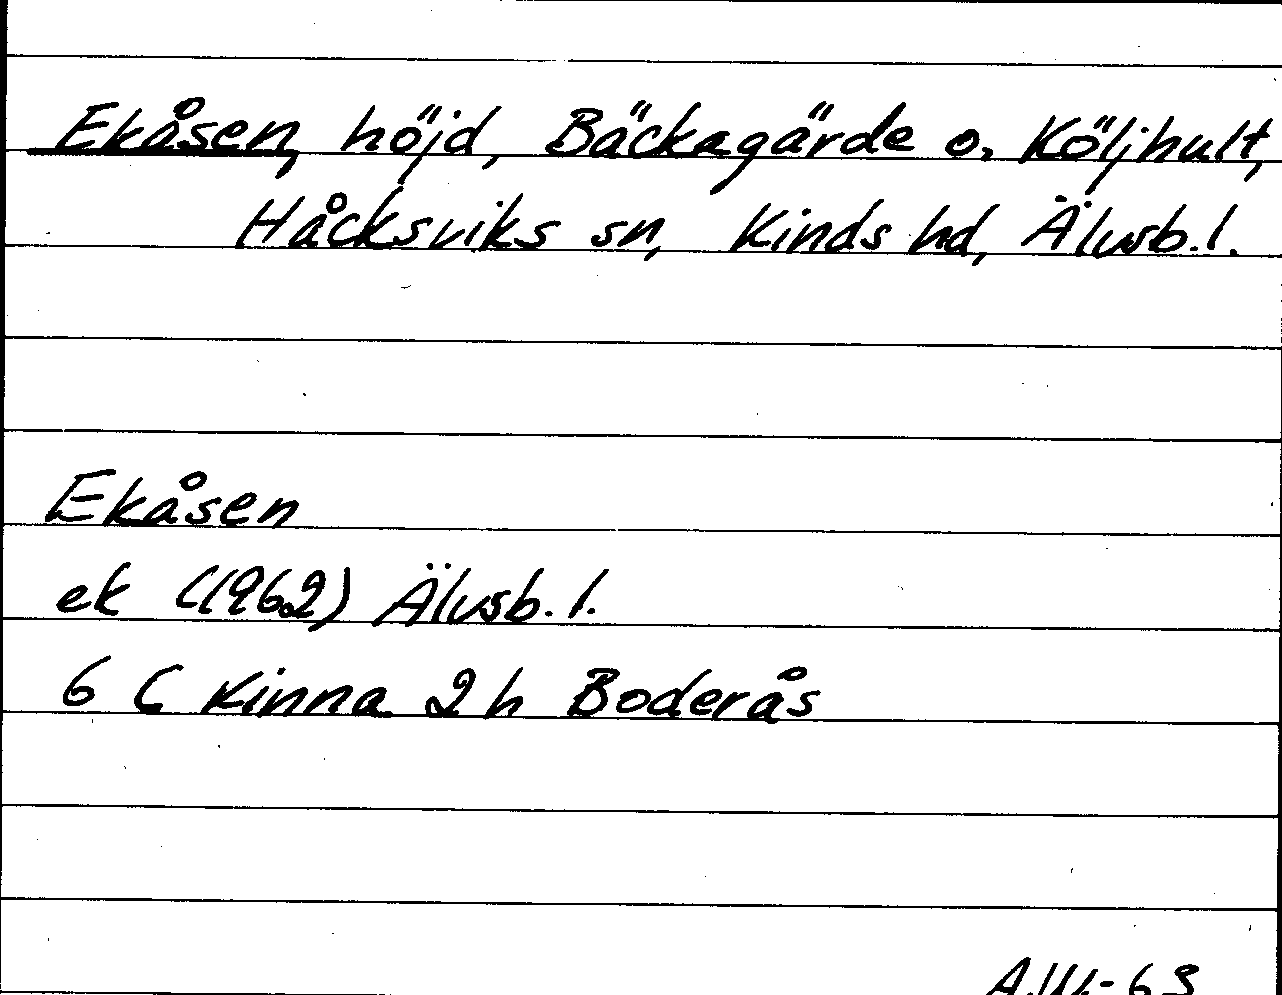 Ekåsen, höjd, Bäckagärde o. Köljhult,
Håcksviks sn, Kinds hd, Älvsb. l.
Ekåsen
ek (1962) Älvsb. l.
6 C Kinna 2 h Boderås
-63